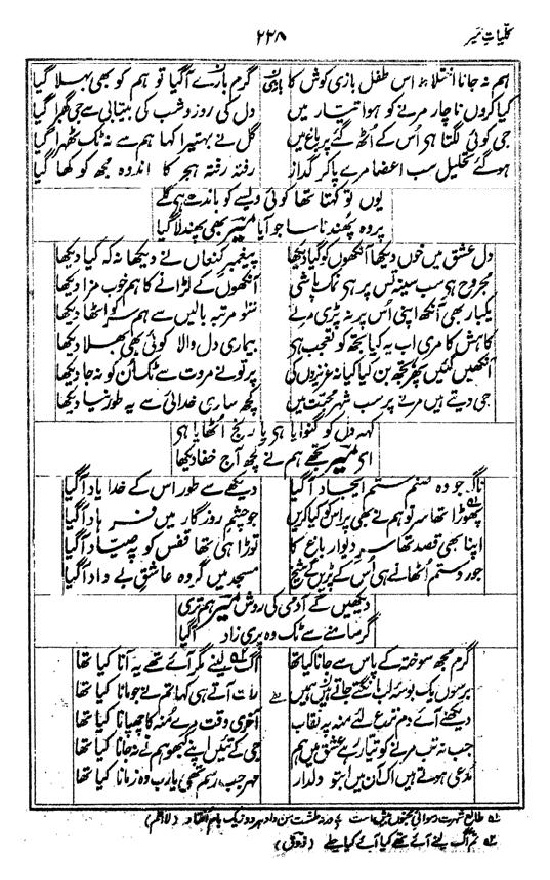 کلیات میر
۲۲۸
ہم نہ جانا اختلاط اس طفل بازی کوش کا گرم بازی آگیا تو ہم کو بھی بہلا گیا
کیا کروں ناچار مرنے کو ہوا تیار میں دل کی روز و شب کی بیتابی سے جی گھبرا گیا
جی کوئی لگتا ہی اس کے اٹھ گئے پر باغ میں گل نے بہتیرا کہا ہم سے نہ ٹک ٹھہرا گیا
ہو گئے تحلیل سب اعضا مرے پا کر گداز رفتہ رفتہ ہجر کا اندوہ مجھ کو کھا گیا
یوں تو کہتا تھا کوئی ویسے کو باندھے ہی گلے
پر وہ پھندنا سا جو آیا میر بھی پھندلا گیا
دل عشق میں خوں دیکھا آنکھوں کو گیا دیکھا پیغمبر کنعاں نے دیکھا نہ کہ کیا دیکھا
مجروح ہی سب سینہ تس پر ہی نمک پاشی آنکھوں کے لڑانے کا ہم خوب مزا دیکھا
یکبار بھی آنکھ اپنی اس پر نہ پڑی مرتے سو مرتبہ بالیں سے ہم سر کو اٹھا دیکھا
کاہش کا مری اب یہ کیا تجھ کو تعجب ہی بیماری دل والا کوئی بھی بھلا دیکھا
آنکھیں گئیں پھر تجھ بن کیا کیا نہ عزیزوں کی پر تو نے مروت سے ٹک ان کو نہ جا دیکھا
جی دیتے ہیں مرنے پر سب شہر محبت میں کچھ ساری خدائی سے یہ طور نیا دیکھا
کہہ دل کو گنوایا ہی یا رنج اٹھایا ہی
ای میر تجھے ہم نے کچھ آج خفا دیکھا
ناگہ جو وہ صنم ستم ایجاد آگیا دیکھے سے طور اس کے خدا یاد آگیا
پھوڑا تھا سر تو ہم نے بھی پر اس کو کیا کریں جو چشم روزگار میں فرہاد آگیا
اپنا بھی قصد تھا سر دیوار باغ کا توڑا ہی تھا قفس کو پہ صیاد آگیا
جور و ستم اٹھانے ہی اس کے پڑیں گے شیخ مسجد میں گر وہ عاشق بے داد آگیا
دیکھیں گے آدمی کی روش میر ہم تری
گر سامنے سے ٹک وہ پری زاد آگیا
گرم مجھ سوختہ کے پاس سے جانا کیا تھا آگ لینے مگر آئے تھے یہ آنا کیا تھا
برسوں یک بوسۂ لب مانگتے جاتے ہیں ہمیں رات آتے ہی کہا تم نے جو مانا کیا تھا
دیکھنے آئے دم نزع لئے منہ پہ نقاب آخری وقت مرے منہ کا چھپانا کیا تھا
جب نہ تب مرنے کو تیار رہے عشق میں ہم جی کے تئیں اپنے کبھو ہم نے نہ جانا کیا تھا
مدعی ہوتے ہیں اک آن میں اب تو دلدار مہر جب رسم تھی یارب وہ زمانا کیا تھا
ہر دو زیک بام افتاد (لااعلم)
تم آگ لینے آئے تھے کیا آئے کیا چلے (ذوقؔ)